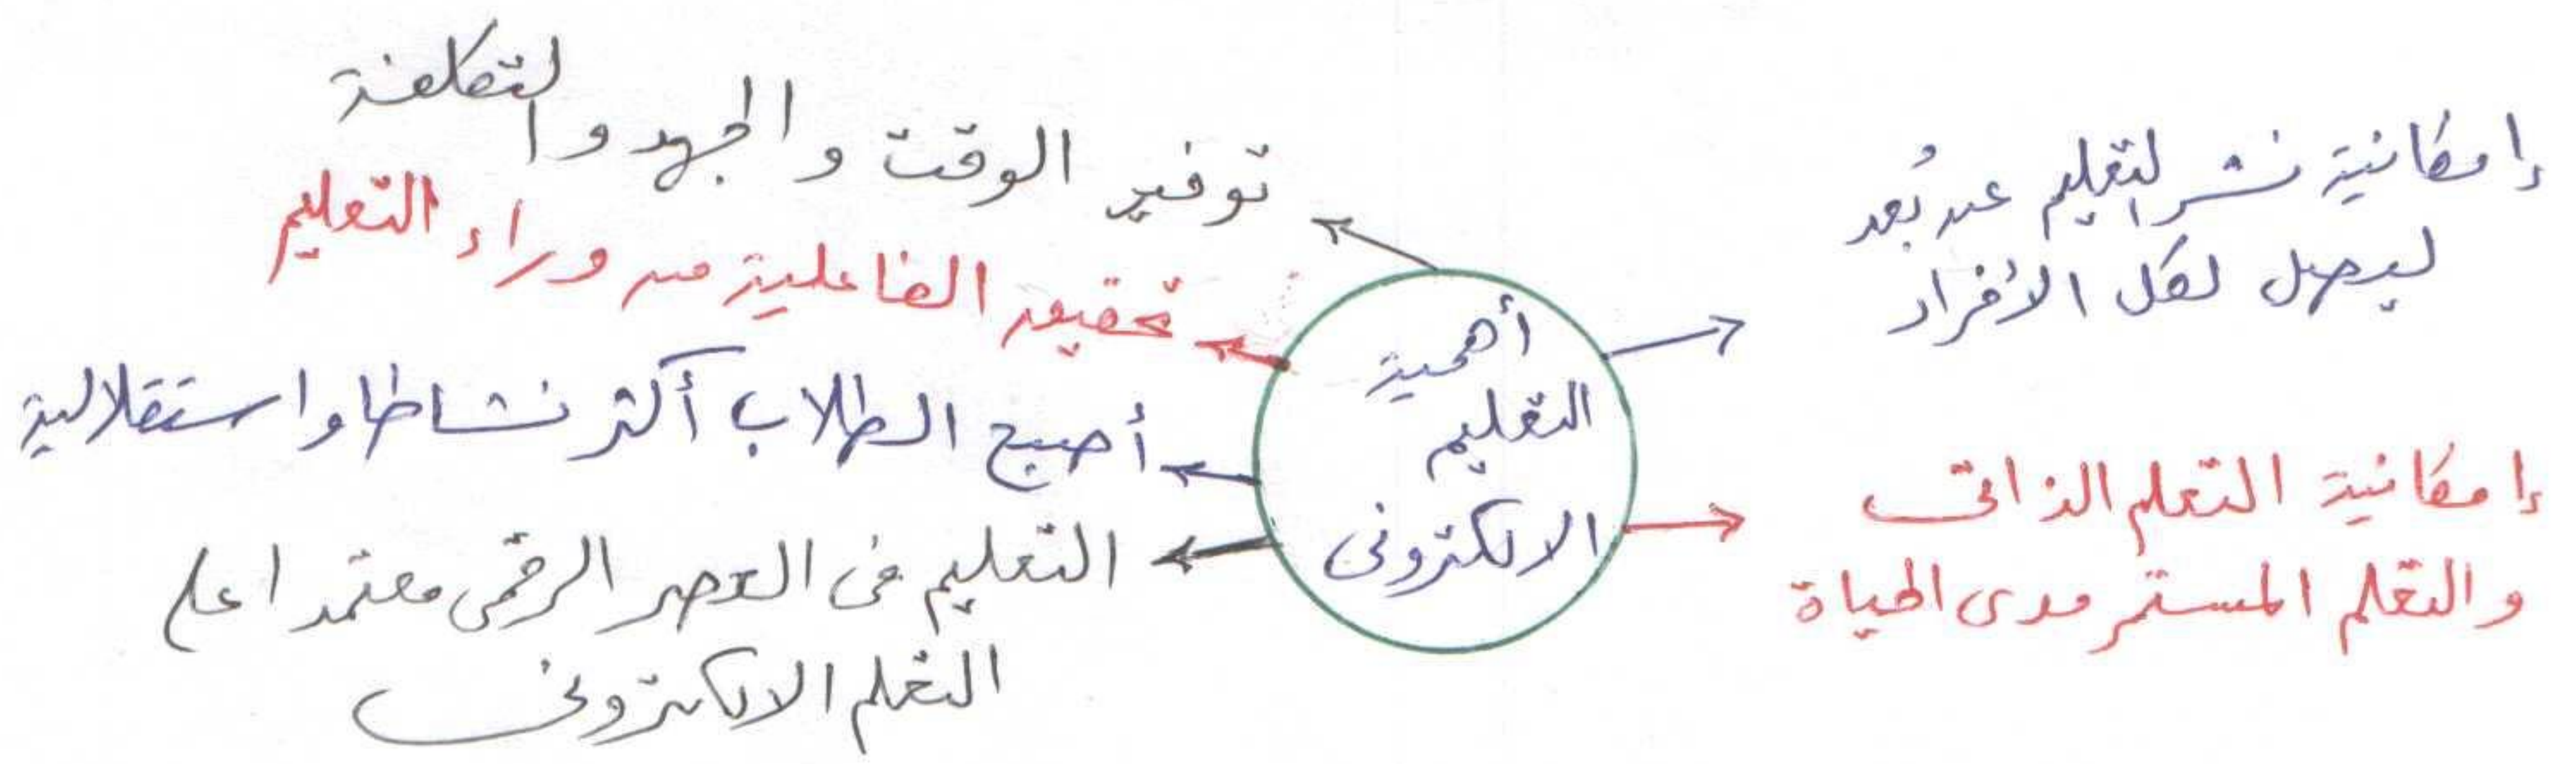 أهمية
التعليم
الالكترونى
إمكانية نشر التعليم عن بُعد
ليصل لكل الأفراد
إمكانية التعلم الذاتى
والتعلم المستمر مدى الحياة
توفير الوقت والجهد والتكلفة
تحقيق الفاعلية من وراء التعليم
أصبح الطلاب أكثر نشاطا واستقلالية
التعليم فى العصر الرقمى معتمدا على
التعلم الالكترونى